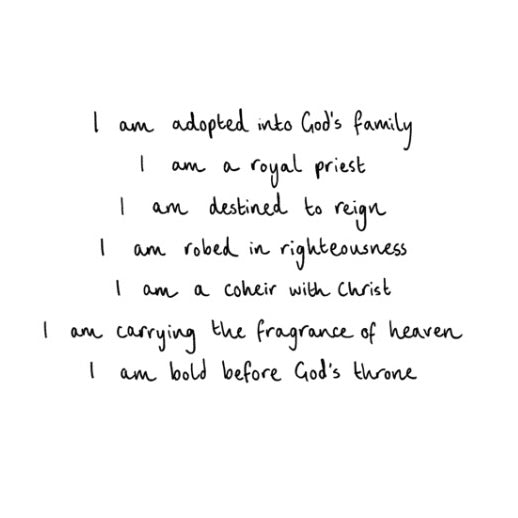 I am adopted into God's family
I am a royal priest
I am destined to reign
I am robed in righteousness
I am a coheir with Christ
I am carrying the fragrance of heaven
I am bold before God's throne